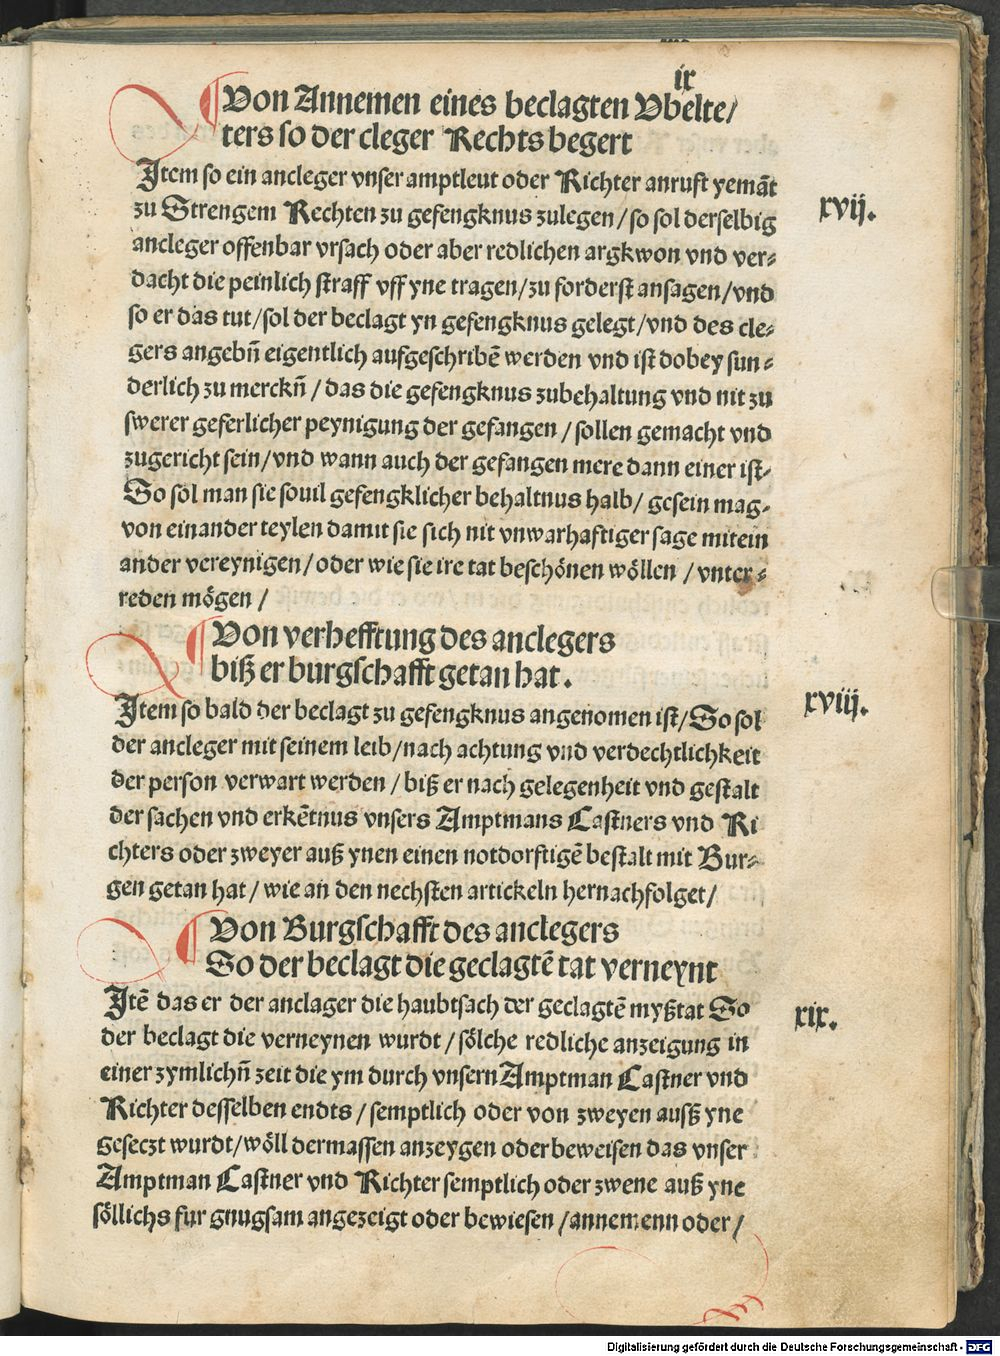 ix
Von Annemen eines beclagten Vbelte/
ters so der cleger Rechts begert
Jtem so ein ancleger vnser amptleut oder Richter anruft yemāt
xvij.
zu Strengem Rechten zu gefengknus zulegen/so sol derselbig
ancleger offenbar vrsach oder aber redlichen argkwon vnd ver-
dacht die peinlich straff vff yne tragen/zu forderst ansagen/vnd
so er das tut/sol der beclagt yn gefengknus gelegt/vnd des cle-
gers angebn̄ eigentlich aufgeschribē werden vnd ist dobey sun-
derlich zu merckn̄ / das die gefengknus zubehaltung vnd nit zu
swerer geferlicher peynigung der gefangen / sollen gemacht vnd
zugericht sein/vnd wann auch der gefangen mere dann einer ist-
So söl man sie souil gefengklicher behaltnus halb/ gesein mag-
von einander teylen damit sie sich nit vnwarhaftiger sage mitein
ander vereynigen/oder wie sie ire tat beschönen wöllen / vnter-
reden mögen /
Von verhefftung des anclegers
biß er burgschafft getan hat.
Jtem so bald der beclagt zu gefengknus angenomen ist/So sol
xviij.
der ancleger mit seinem leib/nach achtung vnd verdechtlichkeit
der person verwart werden / biß er nach gelegenheit vnd gestalt
der sachen vnd erkētnus vnsers Amptmans Castners vnd Ri
chters oder zweyer auß ynen einen notdorftigē bestalt mit Bur-
gen getan hat/ wie an den nechsten artickeln hernachfolget/
Von Burgschafft des anclegers
So der beclagt die geclagtē tat verneynt
Jtē das er der anclager die haubtsach der geclagtē myßtat So
xix.
der beclagt die verneynen wurdt / sölche redliche anzeigung in
einer zymlichn̄ zeit die ym durch vnsern Amptman Castner vnd
Richter desselben endts / semptlich oder von zweyen ausß yne
geseczt wurdt/wöll dermassen anzeygen oder beweisen das vnser
Amptman Castner vnd Richter semptlich oder zwene auß yne
söllichs fur gnugsam angezeigt oder bewiesen /annemenn oder/
Digitalisierung gefördert durch die Deutsche Forschungsgemeinschaft - DFG